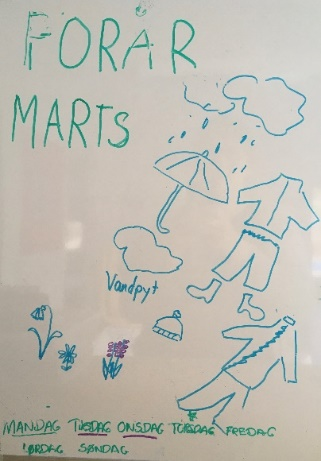 FORÅR
MARTS
Vandpyt
MANDAG TIRSDAG ONSDAG TORSDAG FREDAG
LØRDAG SØNDAG